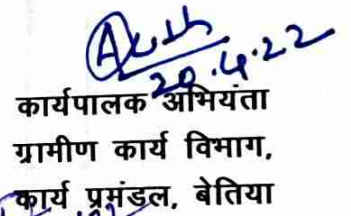 20.4.22
कार्यपालक अभियंता
ग्रामीण कार्य विभाग,
कार्य प्रमंडल, बेतिया